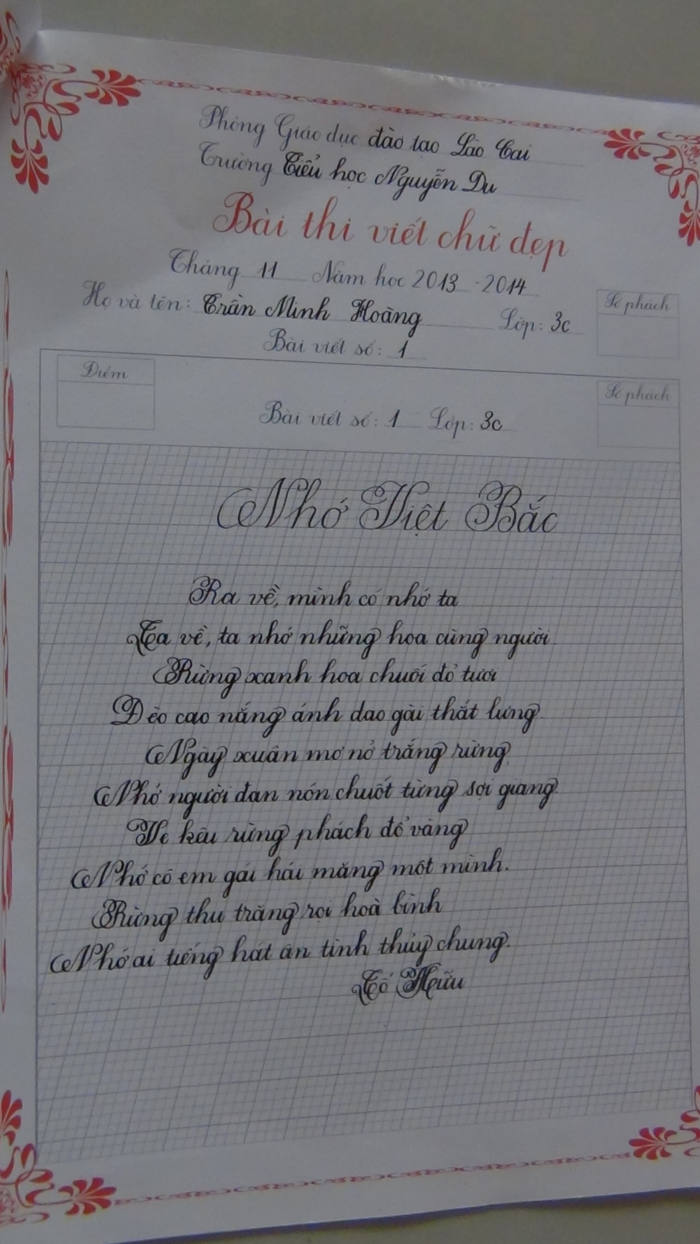 Phòng Giáo dục đào tạo Lào Cai
Trường Tiểu học Nguyễn Du
Bài thi viết chữ đẹp
Tháng 11 Năm học 2013 - 2014
Họ và tên: Trần Minh Hoàng Lớp: 3c
Số phách
Bài viết số: 1
Điểm
Số phách
Bài viết số: 1 Lớp: 3c
Nhớ Việt Bắc
Ra về, mình có nhớ ta
Ta về, ta nhớ những hoa cùng người
Rừng xanh hoa chuối đỏ tươi
Đèo cao nắng ánh dao gài thắt lưng
Ngày xuân mơ nở trắng rừng
Nhớ người đan nón chuốt từng sợi giang
Ve kêu rừng phách đổ vàng
Nhớ cô em gái hái măng một mình.
Rừng thu trăng rọi hoà bình
Nhớ ai tiếng hát ân tình thủy chung.
Tố Hữu